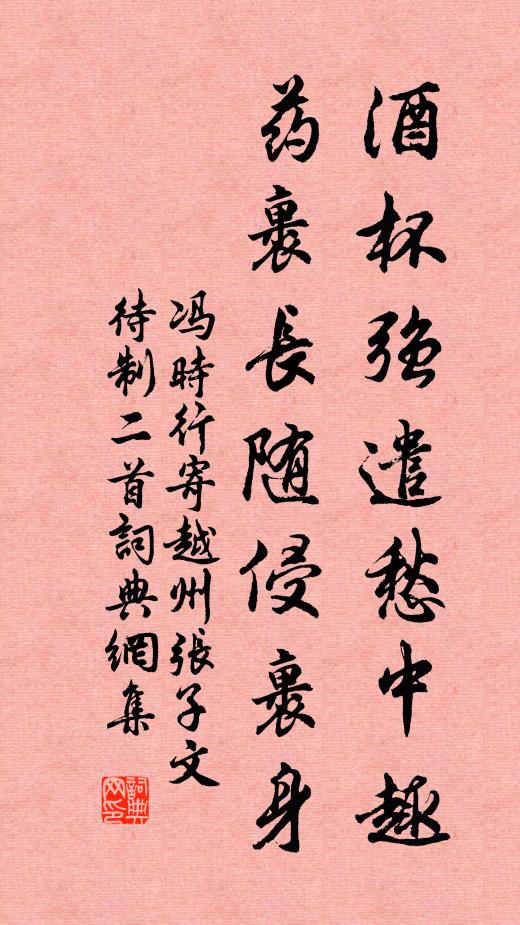 酒杯强遣愁中趣
药裹長随侵裹身
冯時行寄越州張子文
待制二首詞典網集
詞典
网印